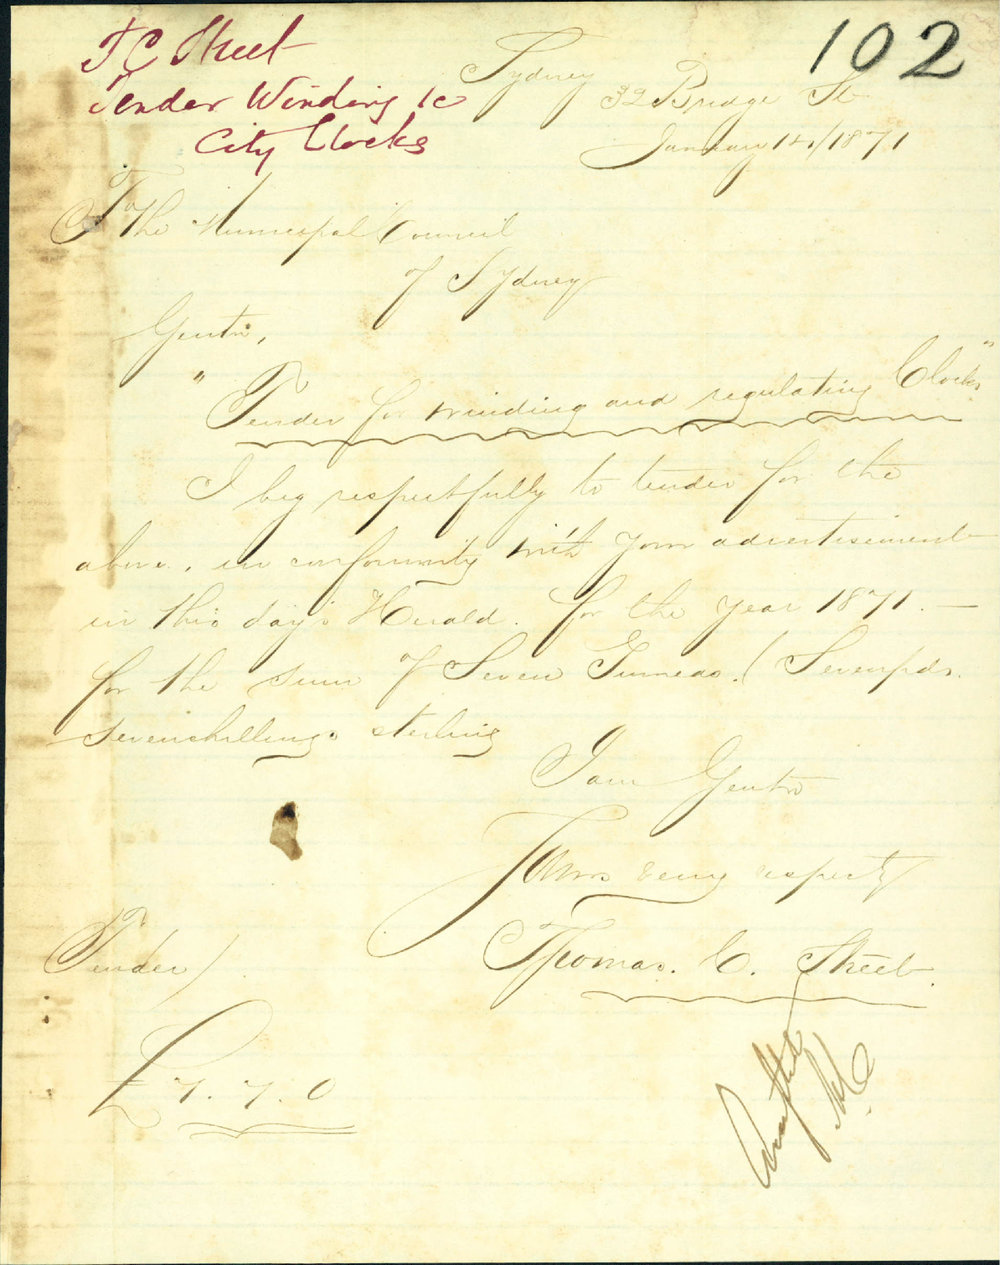 T C Street
Tender Winding &c
City Clocks
102
Sydney
32 Bridge St
January 14/1871
To
The Municipal Council
of Sydney
Gentn,
"Tender for winding and regulating Clocks"
I beg respectfully to tender for the
above, in conformity with your advertisement
in this day's Herald. for the year 1871. —
for the sum of Seven Guineas. (Seven pds.
seven shillings sterling
I am Gentn
Yours very respecty
Thomas. C. Street
Tender)
£7.7.0
Accepted